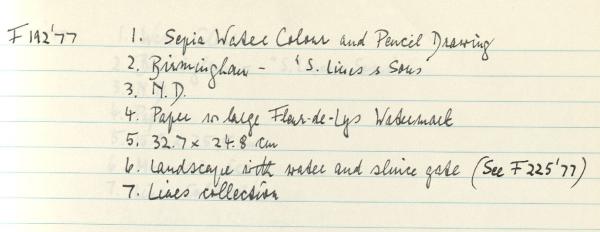 F192'77 1. Sepia Water Colour and Pencil Drawing
2. Birmingham - 'S. Lines & Sons'
3. N.D.
4. Paper w large Fleur-de-Lys Watermark
5. 32.7 x 24.8 cm
6. Landscape with water and sluice gate (See F225'77)
7. Lines collection